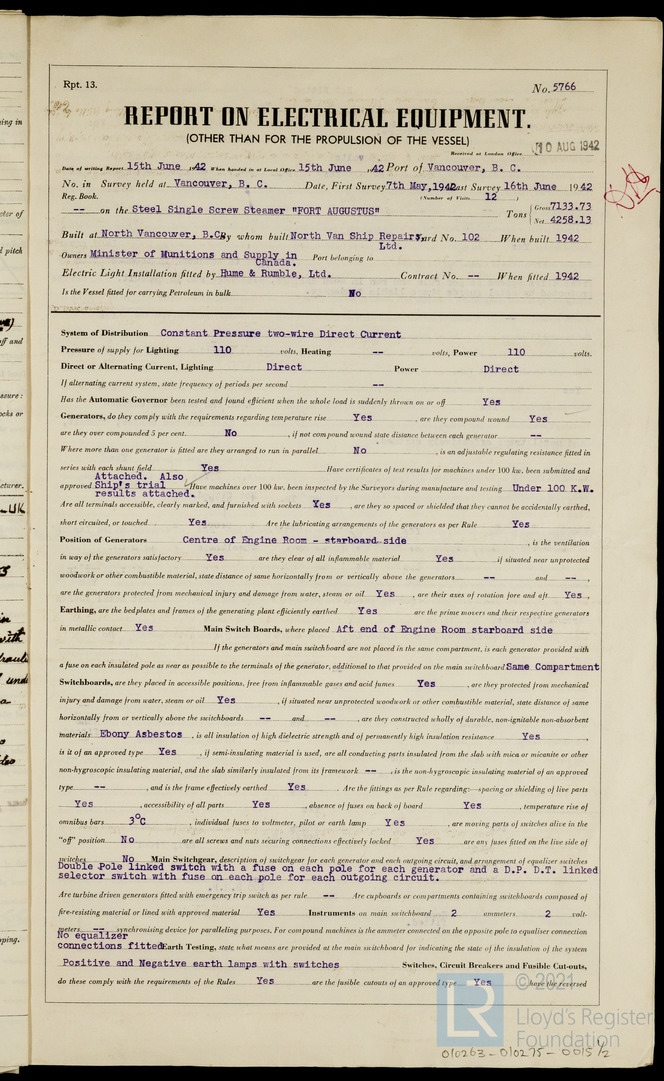 Rpt. 13.
No. 5766
REPORT ON ELECTRICAL EQUIPMENT.
(OTHER THAN FOR THE PROPULSION OF THE VESSEL)
Received at London Office
10 AUG 1942
Date of writing Report 15th June 1942 When handed in at Local Office 15th June 1942 Port of Vancouver, B. C.
No. in Survey held at Vancouver, B. C. Date, First Survey 7th May, 1942 Last Survey 16th June 1942
Reg. Book. (Number of Visits 12 )
-- on the Steel Single Screw Steamer "FORT AUGUSTUS" Tons { Gross 7133.73
Net 4258.13
Built at North Vancouver, B.C. By whom built North Van Ship Repairs, Ltd. Yard No. 102 When built 1942
Owners Minister of Munitions and Supply in Canada. Port belonging to
Electric Light Installation fitted by Hume & Rumble, Ltd. Contract No. -- When fitted 1942
Is the Vessel fitted for carrying Petroleum in bulk No
System of Distribution Constant Pressure two-wire Direct Current
Pressure of supply for Lighting 110 volts, Heating -- volts, Power 110 volts.
Direct or Alternating Current, Lighting Direct Power Direct
If alternating current system, state frequency of periods per second --
Has the Automatic Governor been tested and found efficient when the whole load is suddenly thrown on or off Yes
Generators, do they comply with the requirements regarding temperature rise Yes , are they compound wound Yes
are they over compounded 5 per cent. No , if not compound wound state distance between each generator --
Where more than one generator is fitted are they arranged to run in parallel No , is an adjustable regulating resistance fitted in
series with each shunt field Yes Have certificates of test results for machines under 100 kw. been submitted and
approved Attached. Also Ship's trial results attached. Have machines over 100 kw. been inspected by the Surveyors during manufacture and testing Under 100 K.W.
Are all terminals accessible, clearly marked, and furnished with sockets Yes , are they so spaced or shielded that they cannot be accidentally earthed,
short circuited, or touched Yes Are the lubricating arrangements of the generators as per Rule Yes
Position of Generators Centre of Engine Room - starboard side , is the ventilation
in way of the generators satisfactory Yes are they clear of all inflammable material Yes , if situated near unprotected
woodwork or other combustible material, state distance of same horizontally from or vertically above the generators -- and -- ,
are the generators protected from mechanical injury and damage from water, steam or oil Yes , are their axes of rotation fore and aft Yes ,
Earthing, are the bedplates and frames of the generating plant efficiently earthed Yes are the prime movers and their respective generators
in metallic contact Yes Main Switch Boards, where placed Aft end of Engine Room starboard side
If the generators and main switchboard are not placed in the same compartment, is each generator provided with
a fuse on each insulated pole as near as possible to the terminals of the generator, additional to that provided on the main switchboard Same Compartment
Switchboards, are they placed in accessible positions, free from inflammable gases and acid fumes Yes , are they protected from mechanical
injury and damage from water, steam or oil Yes , if situated near unprotected woodwork or other combustible material, state distance of same
horizontally from or vertically above the switchboards -- and -- , are they constructed wholly of durable, non-ignitable non-absorbent
materials Ebony Asbestos , is all insulation of high dielectric strength and of permanently high insulation resistance Yes ,
is it of an approved type Yes , if semi-insulating material is used, are all conducting parts insulated from the slab with mica or micanite or other
non-hygroscopic insulating material, and the slab similarly insulated from its framework -- , is the non-hygroscopic insulating material of an approved
type -- , and is the frame effectively earthed Yes . Are the fittings as per Rule regarding:—spacing or shielding of live parts
Yes , accessibility of all parts Yes , absence of fuses on back of board Yes , temperature rise of
omnibus bars 3°C , individual fuses to voltmeter, pilot or earth lamp Yes , are moving parts of switches alive in the
"off" position No are all screws and nuts securing connections effectively locked Yes are any fuses fitted on the live side of
switches No Main Switchgear, description of switchgear for each generator and each outgoing circuit, and arrangement of equalizer switches
Double Pole linked switch with a fuse on each pole for each generator and a D.P. D.T. linked
selector switch with fuse on each pole for each outgoing circuit.
Are turbine driven generators fitted with emergency trip switch as per rule -- Are cupboards or compartments containing switchboards composed of
fire-resisting material or lined with approved material Yes Instruments on main switchboard 2 ammeters 2 volt-
meters -- synchronising device for paralleling purposes. For compound machines is the ammeter connected on the opposite pole to equaliser connection
No equalizer
connections fitted Earth Testing, state what means are provided at the main switchboard for indicating the state of the insulation of the system
Positive and Negative earth lamps with switches Switches, Circuit Breakers and Fusible Cut-outs,
do these comply with the requirements of the Rules Yes are the fusible cutouts of an approved type Yes have the reversed
© 2021
LR
Lloyd's Register
Foundation
010263-010275-0015 1/2